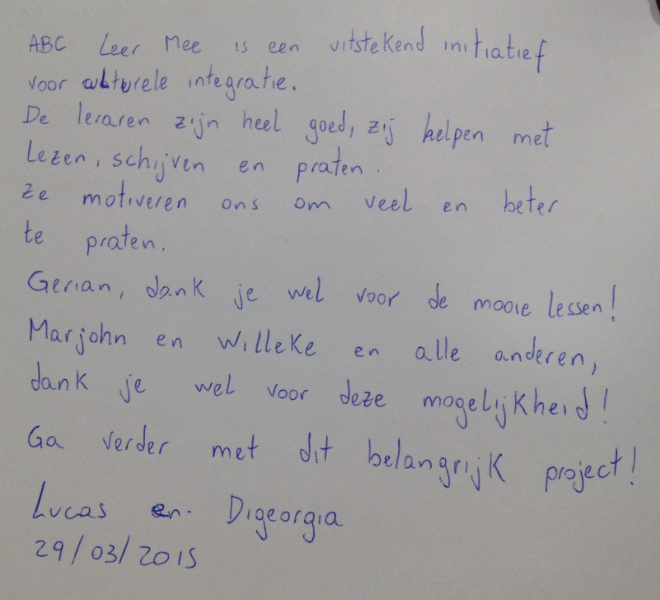 ABC Leer Mee is een uitstekend initiatief
voor culturele integratie.
De leraren zijn heel goed, zij helpen met
Lezen, schijven en praten.
Ze motiveren ons om veel en beter
te praten.
Gerian, dank je wel voor de mooie lessen!
Marjohn en Willeke en alle anderen,
dank je wel voor deze mogelijkheid!
Ga verder met dit belangrijk project!
Lucas en Digeorgia
29/03/2015